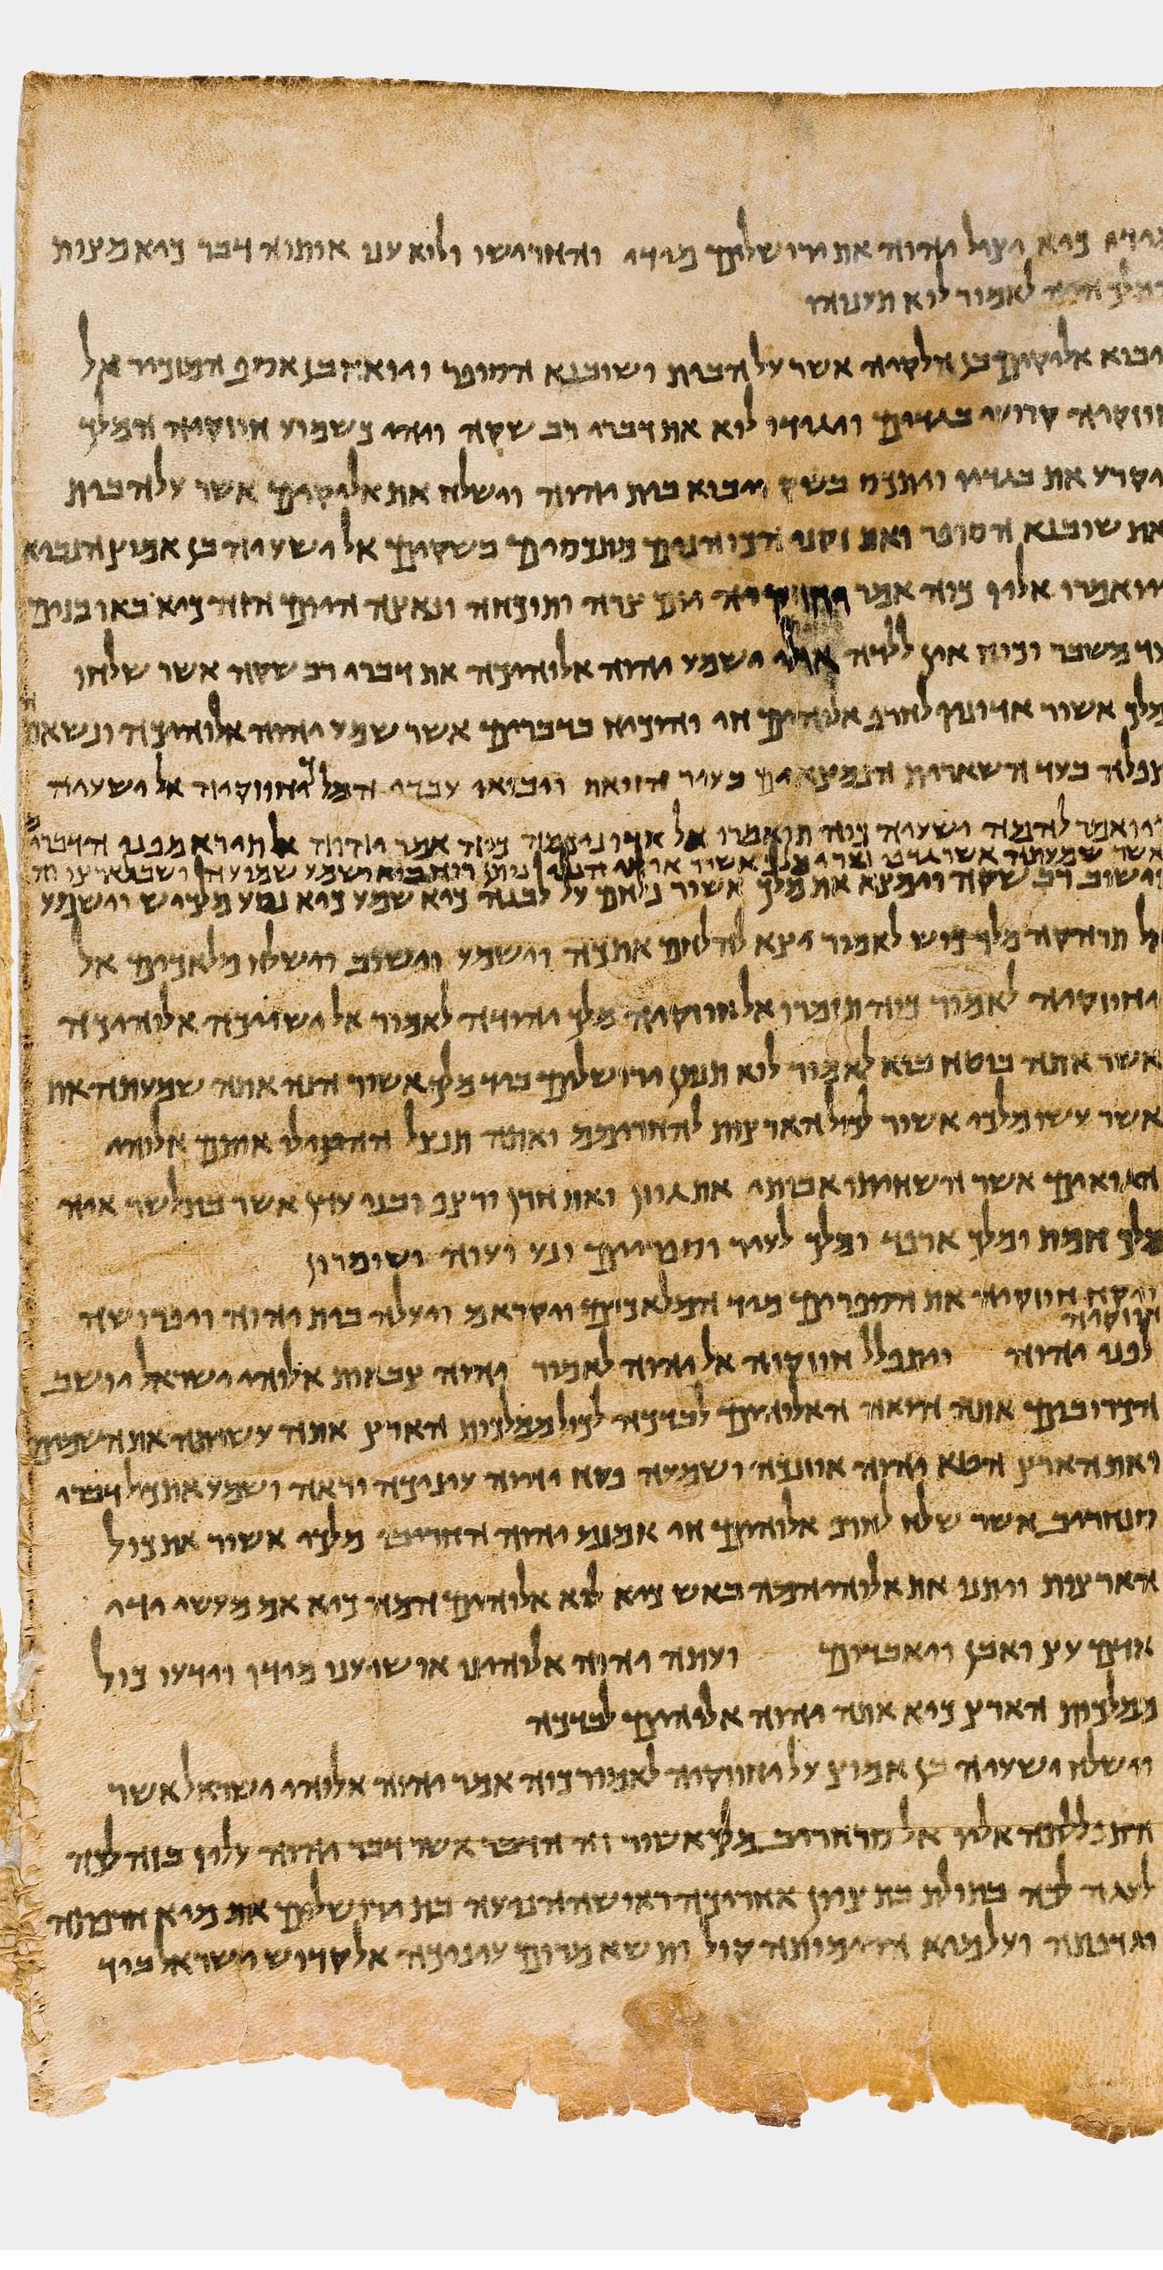 מידי כיא יציל יהוה את ירושלים מידי והחרישו ולוא ענו אותוה דבר כיא מצות
המלך היאה לאמור לוא תענוהו
ויבוא אליקים בן חלקיה אשר על הבית ושובנא הסופר ויואח בן אסף המזכיר אל
חזקיה קרועי בגדים ויגידו לוא את דברי רב שקה ויהי כשמוע חזקיה המלך
ויקרע את בגדיו ויתכס בשק ויבוא בית יהוה וישלח את אליקים אשר על הבית
ואת שובנא הסופר ואת זקני הכוהנים מתכסים בשקים אל ישעיה בן אמוץ הנביא
ויואמרו אליו כוה אמר יחזקיה יום צרה ותוכחה ונאצה היום הזה כיא באו בנים
עד משבר וכוח אין ללדה אולי ישמע יהוה אלוהיכה את דברי רב שקה אשר שלחו
מלך אשור אדוניו לחרף אלוהים חי והוכיח בדברים אשר שמע יהוה אלוהיכה ונשאתה
תפלה בעד השארית הנמצאים בעיר הזואת ויבואו עבדי המלך יחזקיה אל ישעיה
ויואמר להמה ישעיה כוה תואמרו אל אדוניכמה כוה אמר יהוה אל תירא מפני הדברים
אשר שמעתה אשר גדפו נערי מלך אשור אותי הנני נותן רוח בוא ושמע שמועה ושב לארצו
וישוב רב שקה וימצא את מלך אשור נלחם על לבנה כיא שמע כיא נסע מלכיש וישמע
אל תרהקה מלך כוש לאמור יצא להלחם אתכה וישמע וישוב וישלח מלאכים אל
יחזקיה לאמור כוה תומרו אל חזקיה מלך יהודה לאמור אל ישיאכה אלוהיכה
אשר אתה בוטח בוא לאמור לוא תנתן ירושלים ביד מלך אשור הנה אתה שמעתה את
אשר עשו מלכי אשור לכול הארצות להחרימם ואתה תנצל ההצילו אותם אלוהי
הגואים אשר השחיתו אבותי את גוזן ואת חרן ורצף ובני עדן אשר בתלשר איה
מלך חמת ומלך ארפד ומלך לעיר ספריים ונע ועוה ושומרון
ויקח חזקיה את הספרים מיד המלאכים ויקראם ויעלה בית יהוה ויפרושה
חזקיה
לפני יהוה ויתפלל חזקיה אל יהוה לאמור יהוה צבאות אלוהי ישראל יושב
הכרובים אתה הואה האלוהים לבדכה לכול ממלכות הארץ אתה עשיתה את השמים
ואת הארץ הטא יהוה אוזנכה ושמעה פקח יהוה עיניכה וראה ושמע את כול דברי
סנחריב אשר שלח לחרף אלוהים חי אמנם יהוה החריבו מלכי אשור את כול
הארצות ויתנו את אלוהיהמה באש כיא לוא אלוהים המה כיא אם מעשי ידי
אדם עץ ואבן ויאבדום ועתה יהוה אלוהינו אושיענו מידו וידעו כול
ממלכות הארץ כיא אתה יהוה אלוהים לבדכה
וישלח ישעיה בן אמוץ על יחזקיה לאמור כוה אמר יהוה אלוהי ישראל אשר
התפללתה אליו אל סנחריב מלך אשור זה הדבר אשר דבר יהוה עליו בזה לכה
לעגה לכה בתולת בת ציון אחריכה ראושה הניעה בת ירושלים את מיא חרפתה
וגדפתה ועל מיא הרימותה קול ותשא מרום עיניכה אל קדוש ישראל ביד